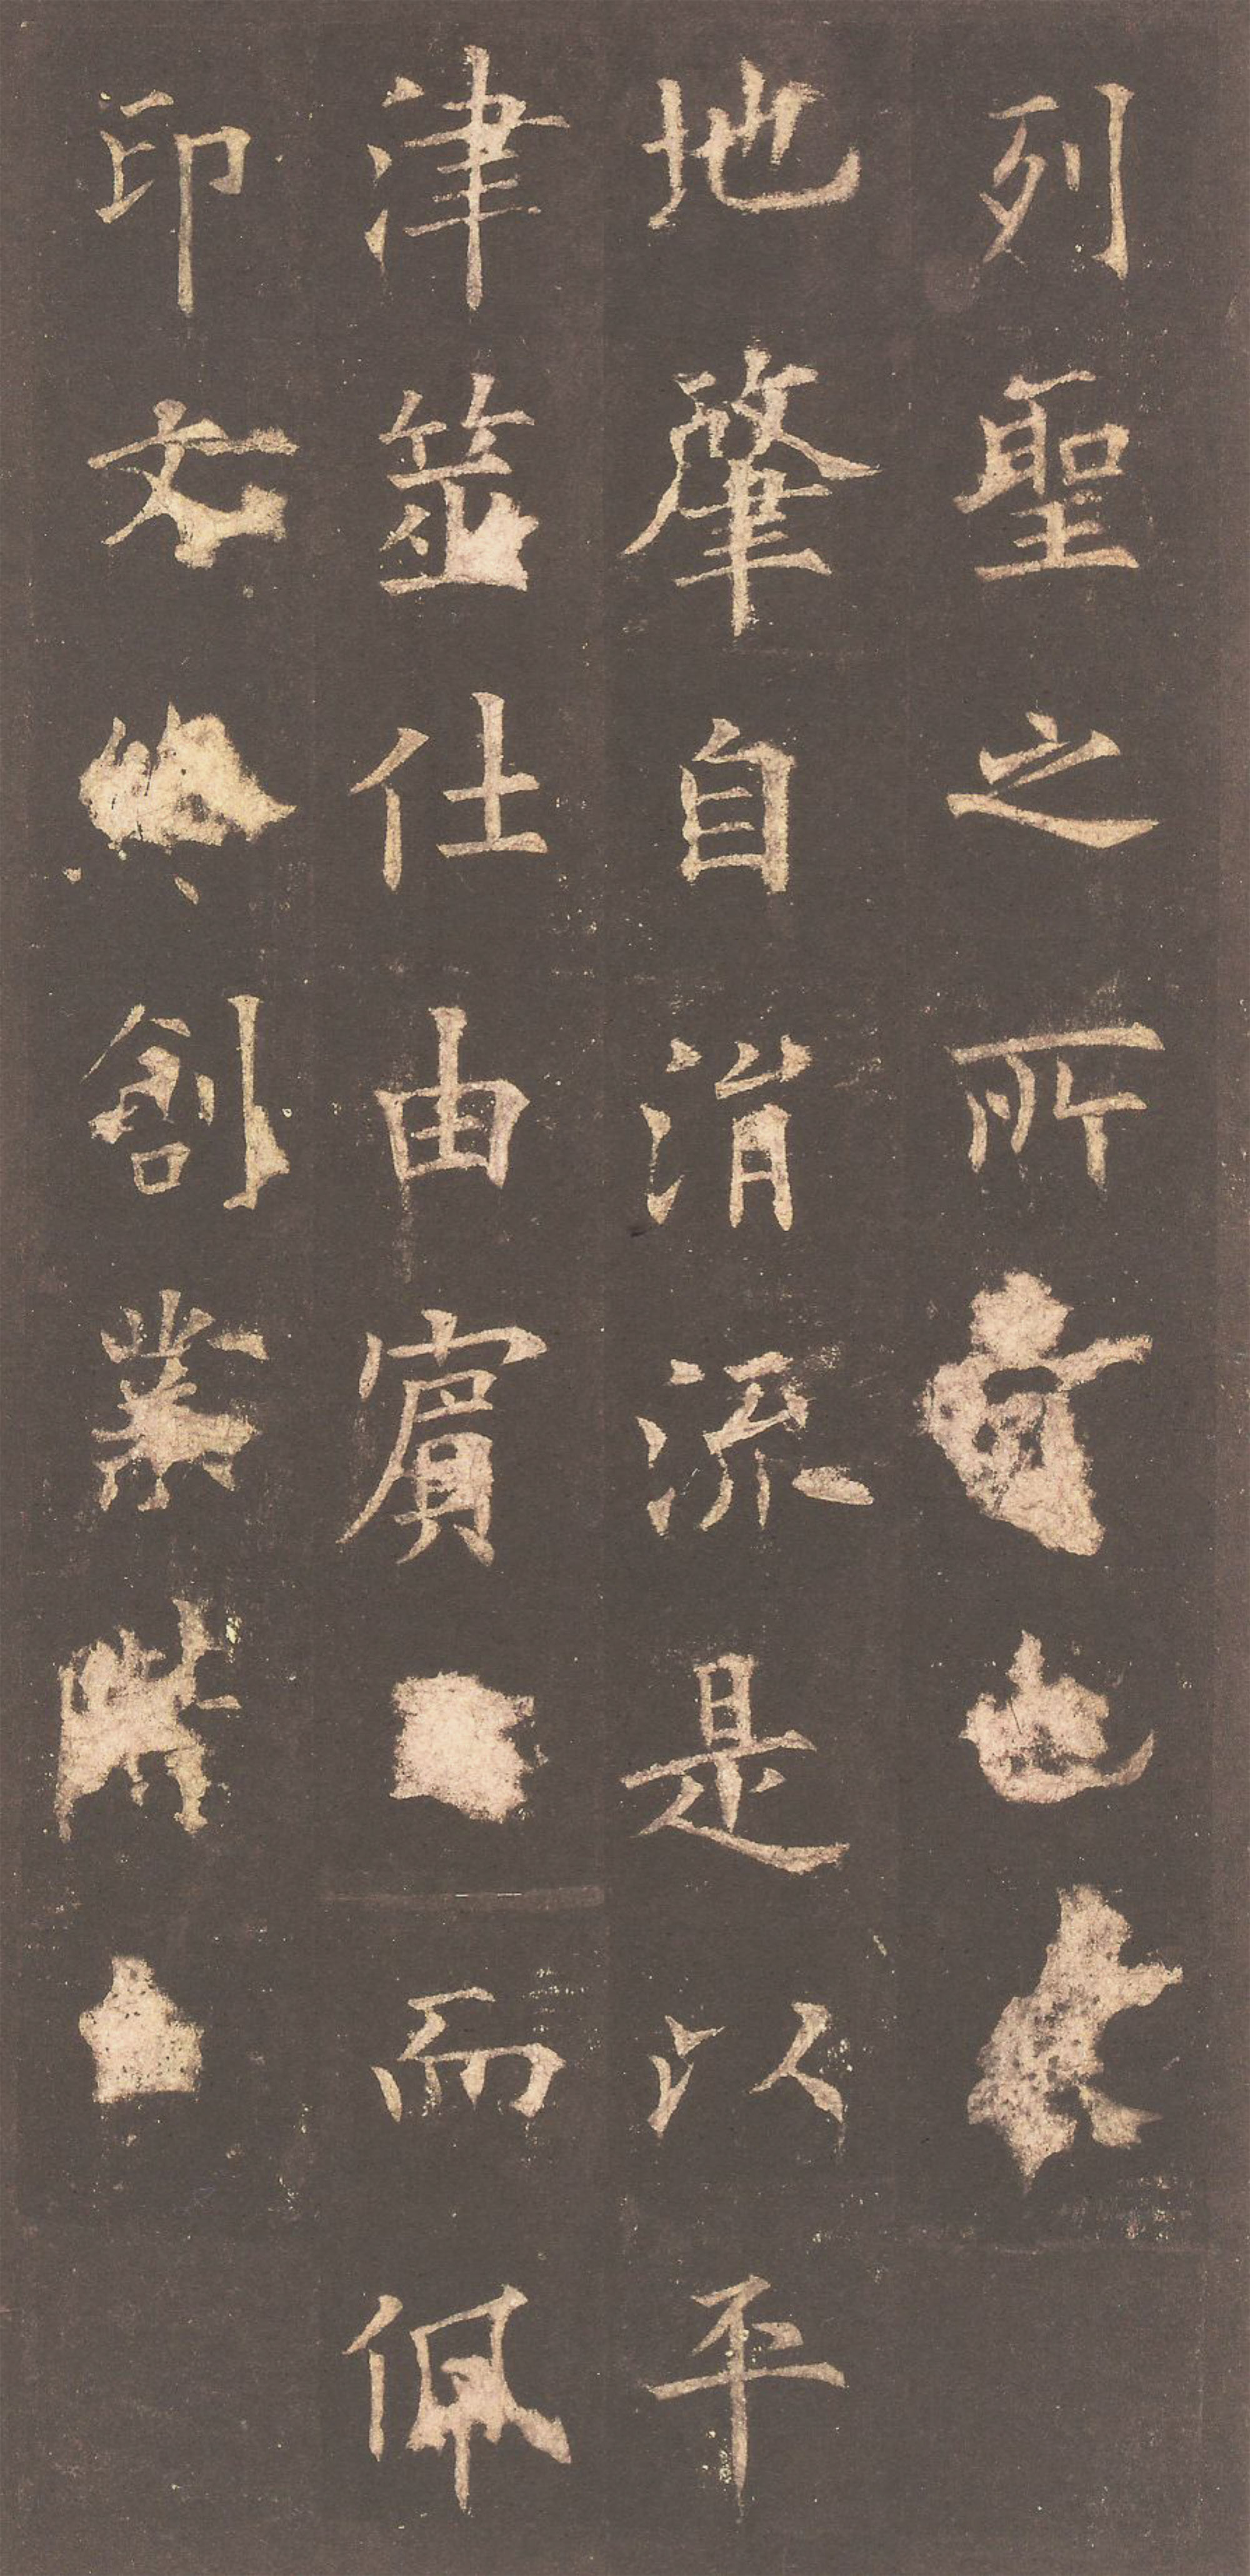 列聖之所
地肇自涓流是以平
津筮仕由賔而佩
印文終創業